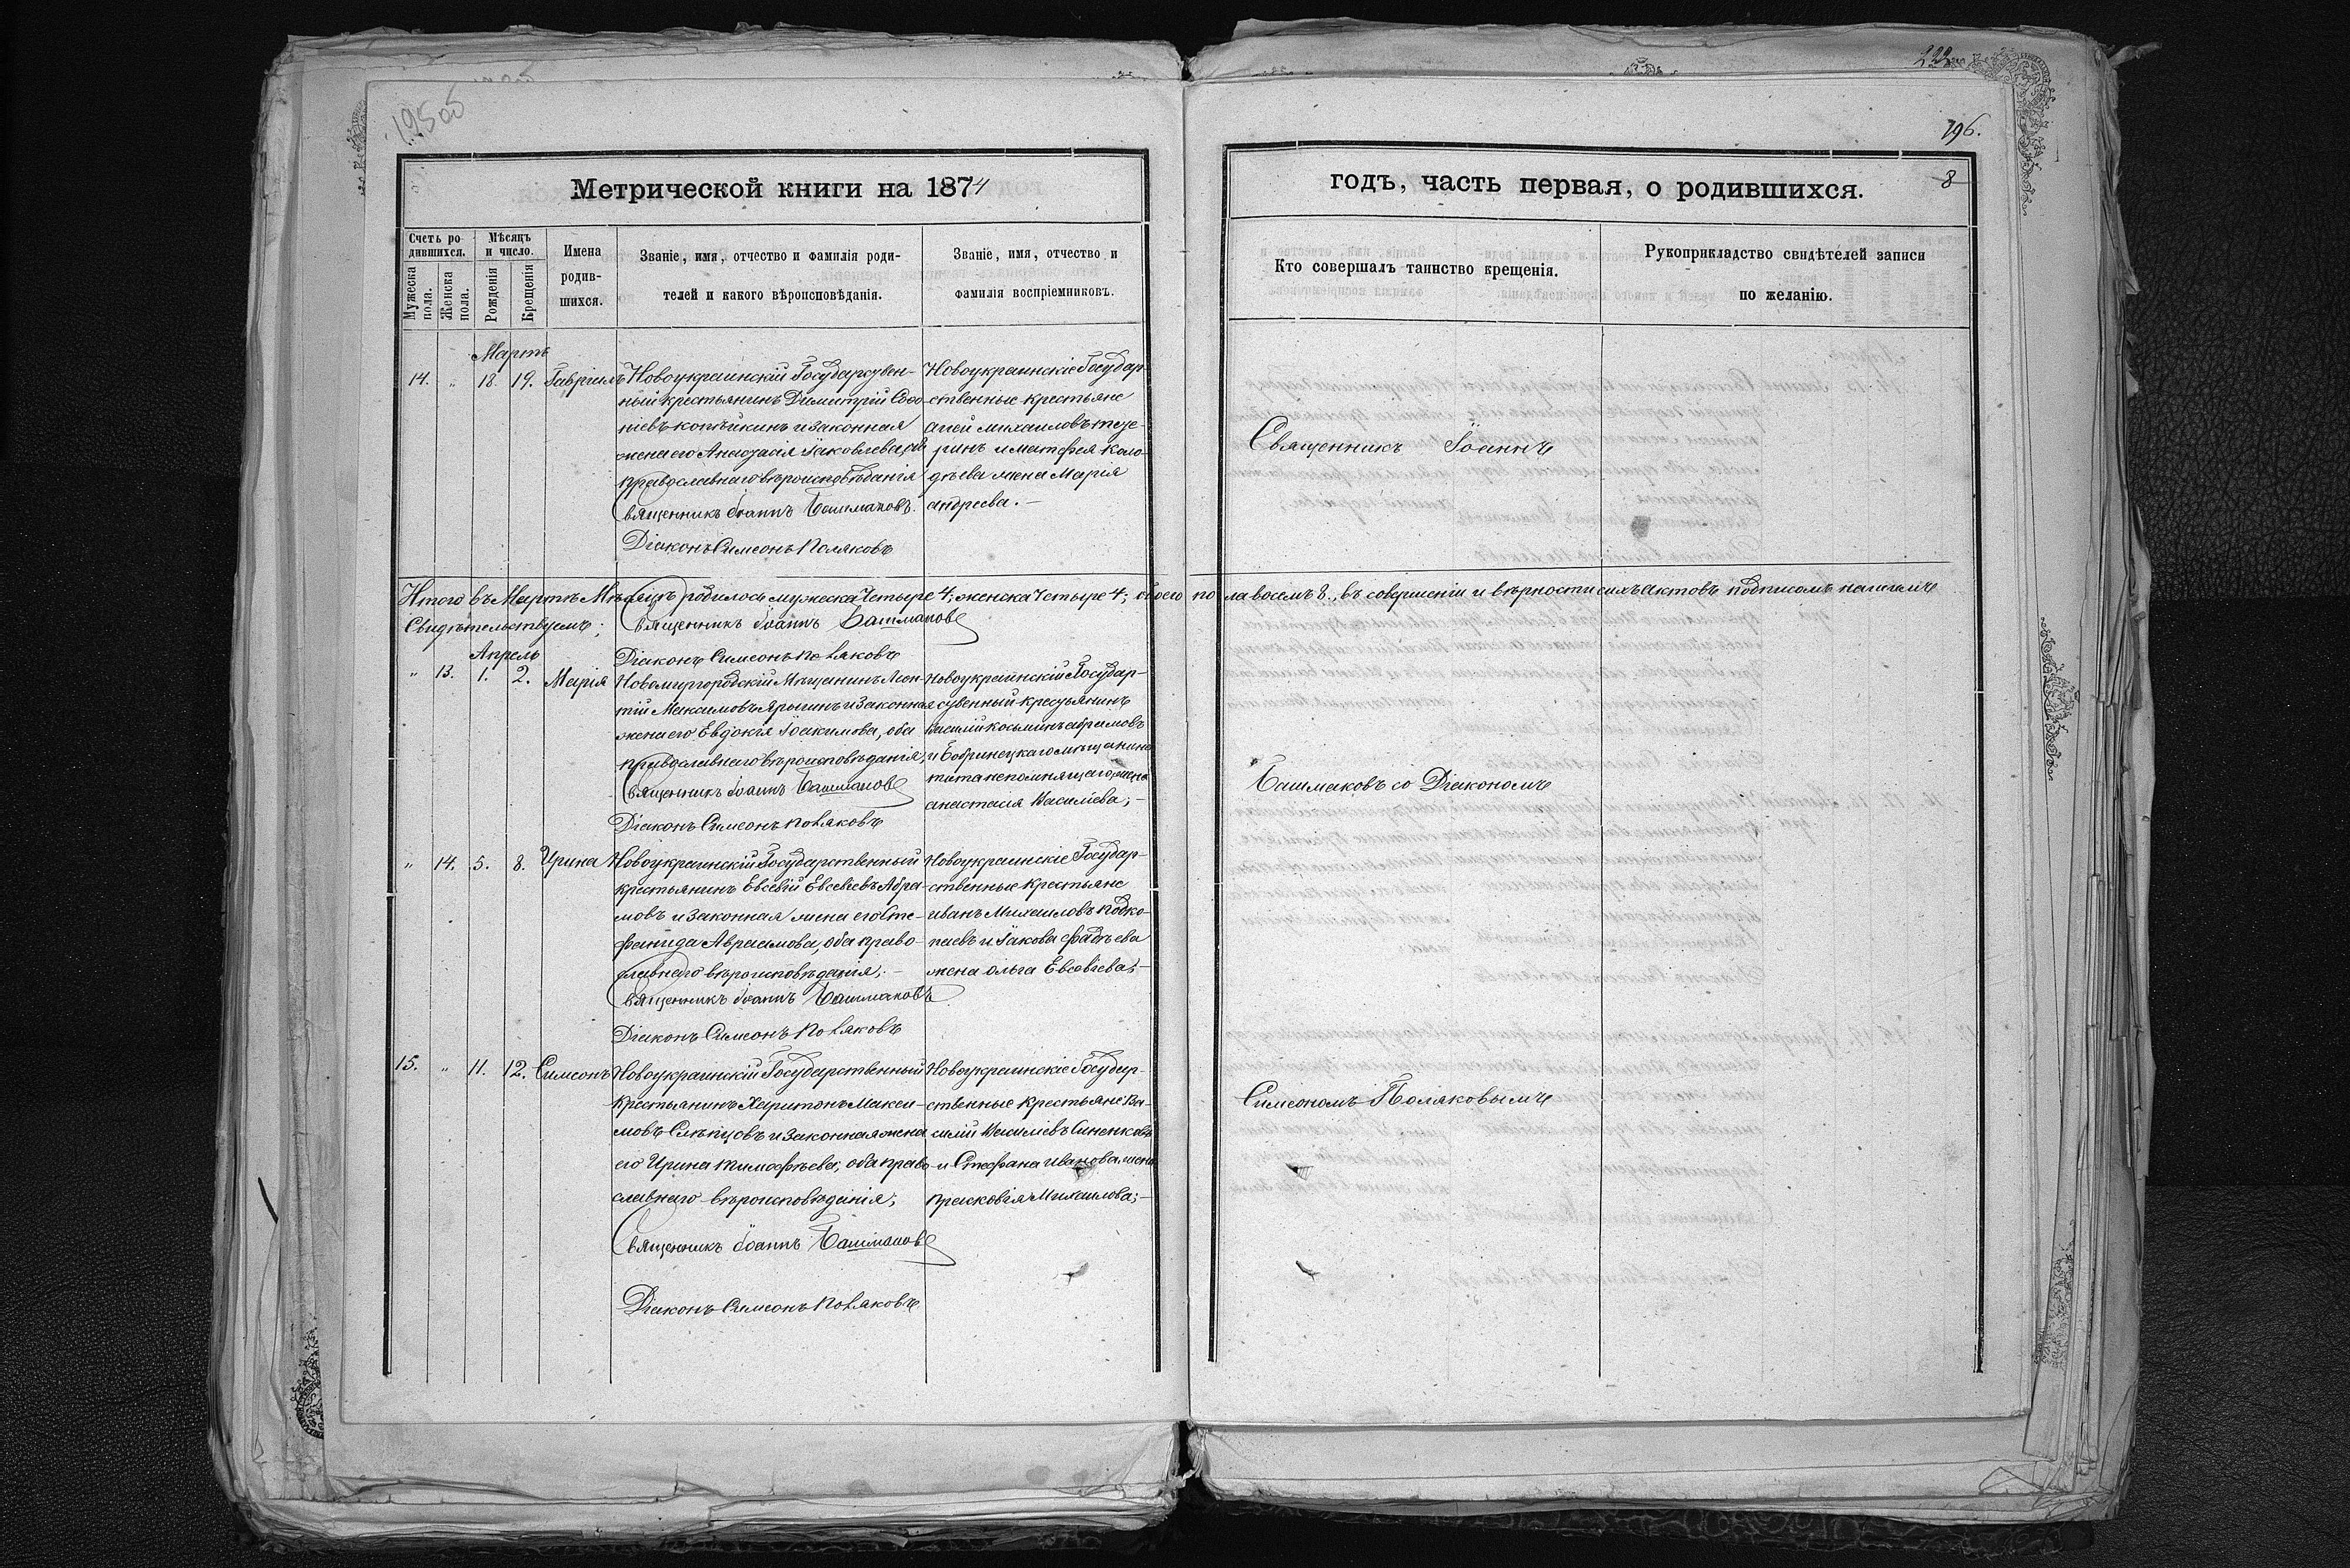 195об
222
196.
Метрической книги на 1874
годъ, часть первая, о родившихся.
8
Счетъ родившихся.
Мужеска пола.
Женска пола.
Мѣсяцъ и число.
Рожденія
Крещенія
Имена родившихся.
Званіе, имя, отчество и фамилія родителей и какого вѣроисповѣданія.
Званіе, имя, отчество и фамилія воспріемниковъ.
Кто совершалъ таинство крещенія.
Рукоприкладство свидѣтелей записи по желанію.
Мартъ
14. „ 18. 19. Гавріилъ
Новоукраинскій Государствен-
ный крестьянинъ Димитрій
копѣйкинъ и законная
жена его Анастасія Іаковлева, оба
православнаго вѣроисповѣданія
Священникъ Іоаннъ Башмаковъ.
Діаконъ Симеонъ Поляковъ
Новоукраинскіе Государ-
ственные крестьяне
Михаиловъ
и матфея коло-
дѣева жена Марія
андреева. –
Священникъ Іоаннъ
Итого въ Мартѣ Мѣсяцѣ родилось мужеска Четыре 4; женска Четыре 4; обоего пола восемь 8., въ совершеніи и вѣрности сихъ актовъ подписомъ нашимъ
Свидѣтельствуемъ;
Священникъ Іоаннъ Башмаковъ
Діаконъ Симеонъ Поляковъ
Апрель
„ 13. 1. 2. Марія
Новомиргородскій Мѣщанинъ Леон-
тій Максимовъ Ярыгинъ и законная
жена его Евдокія Іоакимова, оба
православнаго вѣроисповѣданія;
Священникъ Іоаннъ Башмаковъ
Діаконъ Симеонъ Поляковъ
Новоукраинскій Государ-
ственный крестьянинъ
василій косьминъ абрамовъ
и Бобринецкаго мѣщанина
тита непомнящаго жена
анастасія Василіева; –
Башмаковъ со Діакономъ
„ 14. 5. 8. Ирина
Новоукраинскій Государственный
крестьянинъ Евсевій Евсевіевъ Абра-
мовъ и законная жена его Сте-
фанида Авраамова, оба право-
славнаго вѣроисповѣданія; –
Священникъ Іоаннъ Башмаковъ
Діаконъ Симеонъ Поляковъ
Новоукраинскіе Государ-
ственные крестьяне
иванъ Михаиловъ подко-
паевъ и Іакова фадѣева
жена ольга Евсевіева; –
15. „ 11. 12. Симеонъ
Новоукраинскій Государственный
крестьянинъ Харитонъ Макси-
мовъ Слѣпцовъ и законная жена
его Ирина тимофѣева, оба право-
славнаго вѣроисповѣданія;
Священникъ Іоаннъ Башмаковъ
Діаконъ Симеонъ Поляковъ
Новоукраинскіе Государ-
ственные крестьяне Ва-
силій Василіевъ Синенковъ
и Стефана иванова жена
прасковія Михаилова; –
Симеономъ Поляковымъ